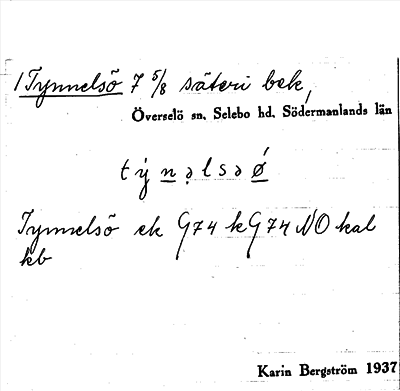 1 Tynnelsö 7 5/8 säteri bek,
Överselö sn. Selebo hd. Södermanlands län
tý n ə l s ə ø´
Tynnelsö ek G74 k G74 NO kal
kb
Karin Bergström 1937